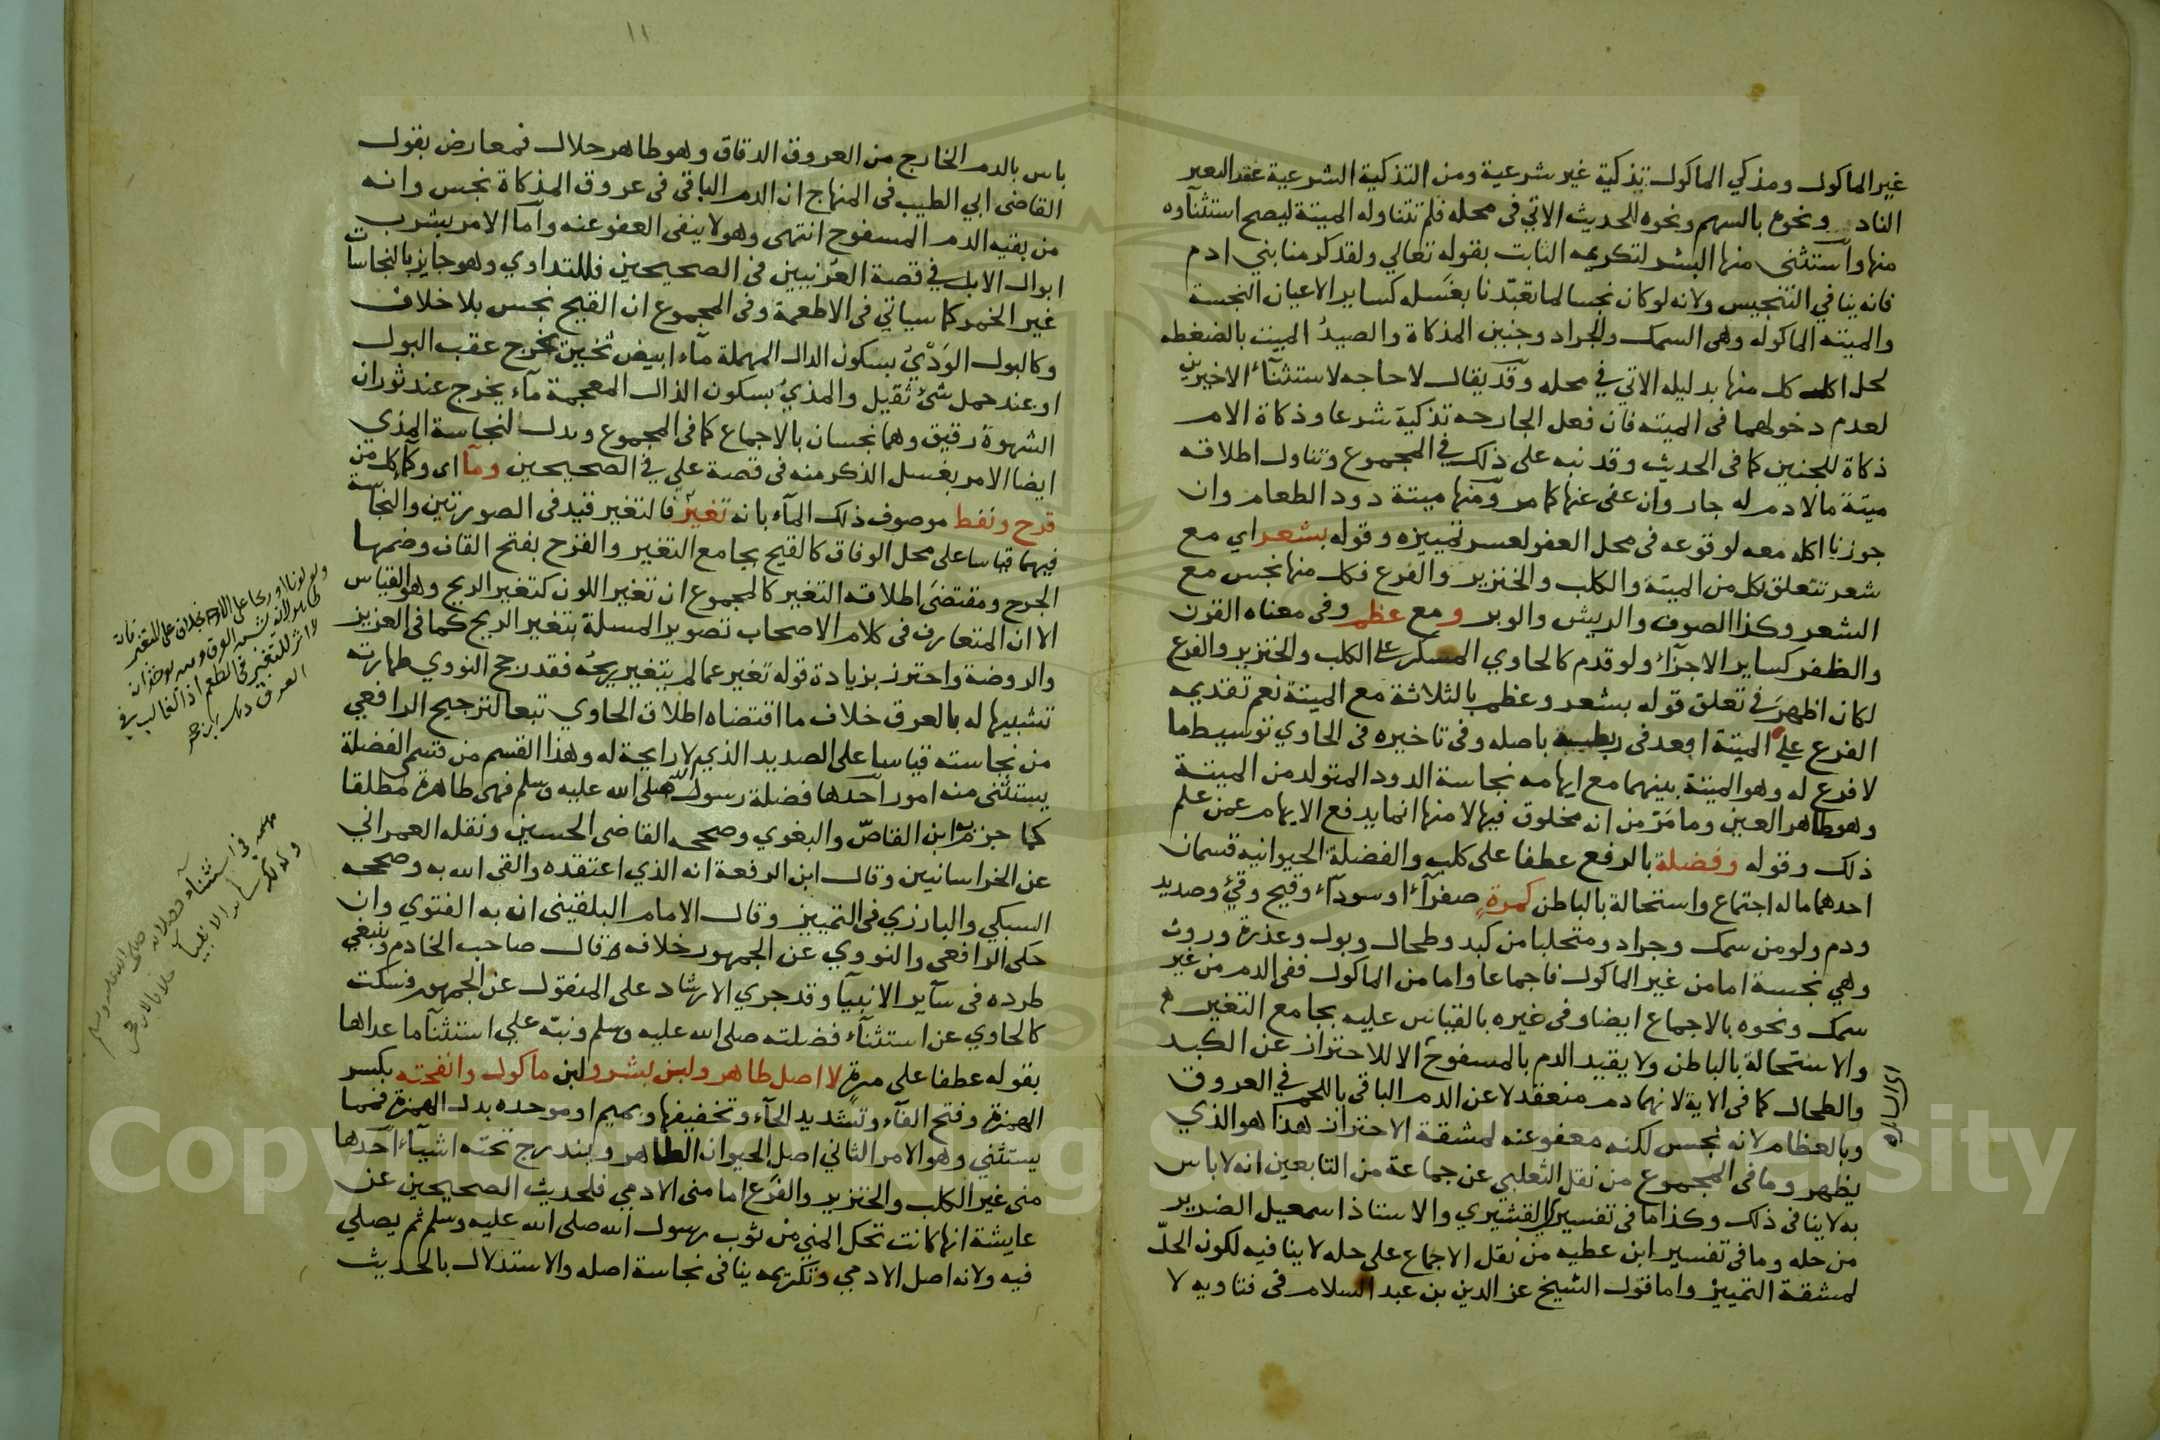 غير الماكول ومذكي الماكول تذكية غير شرعية ومن التذكية الشرعية عقر البعير
الناد ونحوه بالسهم ونحوه للحديث الاتي في محله فلم تتناوله الميتة ليصح استثنآوه
منها وآستثنى منها البشر لتكريمه الثابت بقوله تعالي ولقد كرمنا بني ادم
فانه ينافي التنجيس ولانه لو كان نجسا لما تعبّدنا بغسله كساير الاعيان النجسة
والميته الماكوله وهي السمك والجراد وجنين المذكاة والصيدُ الميت بالضغطه
لحل اكله كل منها بدليله الاتي في محله وقد يقال لا حاجه لاستثنآء الاخيرين
لعدم دخولهما في الميته فان فعل الجارحه تذكية شرعا وذكاة الام
ذكاة للجنين كما في الحديث وقد نبه على ذلك في المجموع وتناول اطلاقه
ميتة ما لا دم له جار وان عفى عنها كما مر ومنها ميتة دود الطعام وان
جوزنا اكله معه لوقوعه في محل العفو لعسر تمييزه وقوله بشعر اي مع
شعر تتعلق بكل من الميتة والكلب والخنزير والفرع فكل منها نجس مع
الشعر وكذا الصوف والريش والوبر و مع عظم وفي معناه القرن
والظفر كساير الاجزآء ولو قدم كالحاوي المسكر على الكلب والخنزير والفرع
لكان اظهر في تعلق قوله بشعر وعظم بالثلاثة مع الميتة نعم تقديمه
الفرع علي الميتة اوعد في ربطه باصله وفي تاخيره في الحاوي توسيط ما
لا فرع له وهو الميتة بينهما مع ايهامه نجاسة الدود المتولد من الميتة
وهو طاهر العين وما مَرّ من انه مخلوق فيها لا منها انما يدفع الايهام عمن علم
ذلك وقوله وفضلة بالرفع عطفا على كلب والفضلة الحيوانيه قسمان
احدهما ما له اجتماع واستحالة بالباطن كمرة صفرآء او سودآء وقيح وقئ وصديد
ودم ولو من سمك وجراد ومتحلبا من كبد وطحال وبول وعذرة وروث
وهي نجسة اما من غير الماكول فاجماعا واما من الماكول ففي الدم من غير
سمك ونحوه بالاجماع ايضا وفي غيره بالقياس عليه بجامع التغير
والاستحالة بالباطن ولا يقيد الدم بالمسفوح الا للاحتراز عن الكبد
والطحال كما في الاية لانهما دم منعقد لا عن الدم الباقي باللحم في العروق
وبالعظام لانه نجس لكنه معفو عنه لمشقة الاحتراز هذا هو الذي
يظهر وما في المجموع من نقل الثعلبي عن جماعة من التابعين انه لا باس
به لا ينافي ذلك وكذا ما في تفسير القشيري والاستاذ اسمعيل الضرير
من حله وما في تفسير ابن عطيه من نقل الاجماع على حله لا ينافيه لكون الحلّ
لمشقة التمييز واما قول الشيخ عز الدين بن عبد السلام في فتاويه لا
١١
باس بالدم الخارج من العروق الدقاق وهو طاهر حلال فمعارض بقول
القاضي ابي الطيب في المنهاج ان الدم الباقي في عروق المذكاة نجس وانه
من بقيه الدم المسفوح انتهى وهو لا ينفى العفو عنه وآما الامر بشرب
ابوال الابل في قصة العُرَنيين في الصحيحين فللتداوي وهو جايز بالنجاسات
غير الخمر كما سياتي في الاطعمة وفي المجموع ان القيح نجس بلا خلاف
وكالبول الوَدْيُ بسكون الدال المهملة مآء ابيض ثخين يخرج عقب البول
او عند حمل شئ ثقيل والمذي بسكون الذال المعجمة مآء يخرج عند ثوران
الشهوة رقيق وهما نجسان بالاجماع كما في المجموع ويدل لنجاسة المذي
ايضا الامر بغسل الذكر منه في قصة علي في الصحيحين ومآ اي وكماء كل من
قرح ونفط موصوف ذلك المآء بانه تغير فالتغير قيد في الصورتين والنجاسة
فيهما قياسا على محل الوفاق كالقيح بجامع التغير والقرح بفتح القاف وضمها
الجرح ومقتضى اطلاقه التغير كالمجموع ان تغير اللون كتغير الريح وهو القياس
الا ان المتعارف في كلام الاصحاب تصوير المسلة بتغير الريح كما في العزيز
والروضة واحترز بزيادة قوله تغير عما لم يتغير ريحُه فقد رجح النووي طهارته
تشبيها له بالعرق خلاف ما اقتضاه اطلاق الحاوي تبعا لترجيح الرافعي
من نجاسته قياسا على الصديد الذي لا رايحة له وهذا القسم من قسمي الفضلة
يستثنى منه امور آحدها فضلة رسول الله صلى الله عليه وسلم فهي طاهرة مطلقا
كما جزم به ابن القاصّ والبغوي وصححه القاضي الحسين ونقله العمراني
عن الخراسانيين وقال ابن الرفعة انه الذي اعتقده والقى الله به وصححه
السبكي والبارزي في التمييز وقال الامام البلقيني ان به الفتوي وان
حكى الرافعي والنووي عن الجمهور خلافه قال صاحب الخادم وينبغي
طرده في سآير الانبيآ وقد جري الارشاد على المنقول عن الجمهور فسكت
كالحاوي عن استثنآء فضلته صلى الله عليه وسلم ونبّه علي استثنآ ما عداها
بقوله عطفا على مرة لا اصل طاهر ولبن بشر ولبن ماكول وانفحته بكسر
الهمزة وفتح الفآء وتشديد الحآء وتخفيفها وبميم او موحده بدل الهمزة فمما
يستثني وهو الامر الثاني اصل الحيوان الطاهر ويندرج تحته اشيآء آحدها
مني غير الكلب والخنزير والفرع اما مني الادمي فلحديث الصحيحين عن
عايشة انها كانت تحك المني من ثوب رسول الله صلى الله عليه وسلم ثم يصلي
فيه ولانه اصل الادمي وتكريمه ينافي نجاسة اصله والاستدلال بالحديث
لا اثر للتغير في الطعم اذ الغالب في
مهمه في استثناء فضلاته صلى الله عليه وسلم
وكذلك سائر الانبيا
Copyright © King Saud University